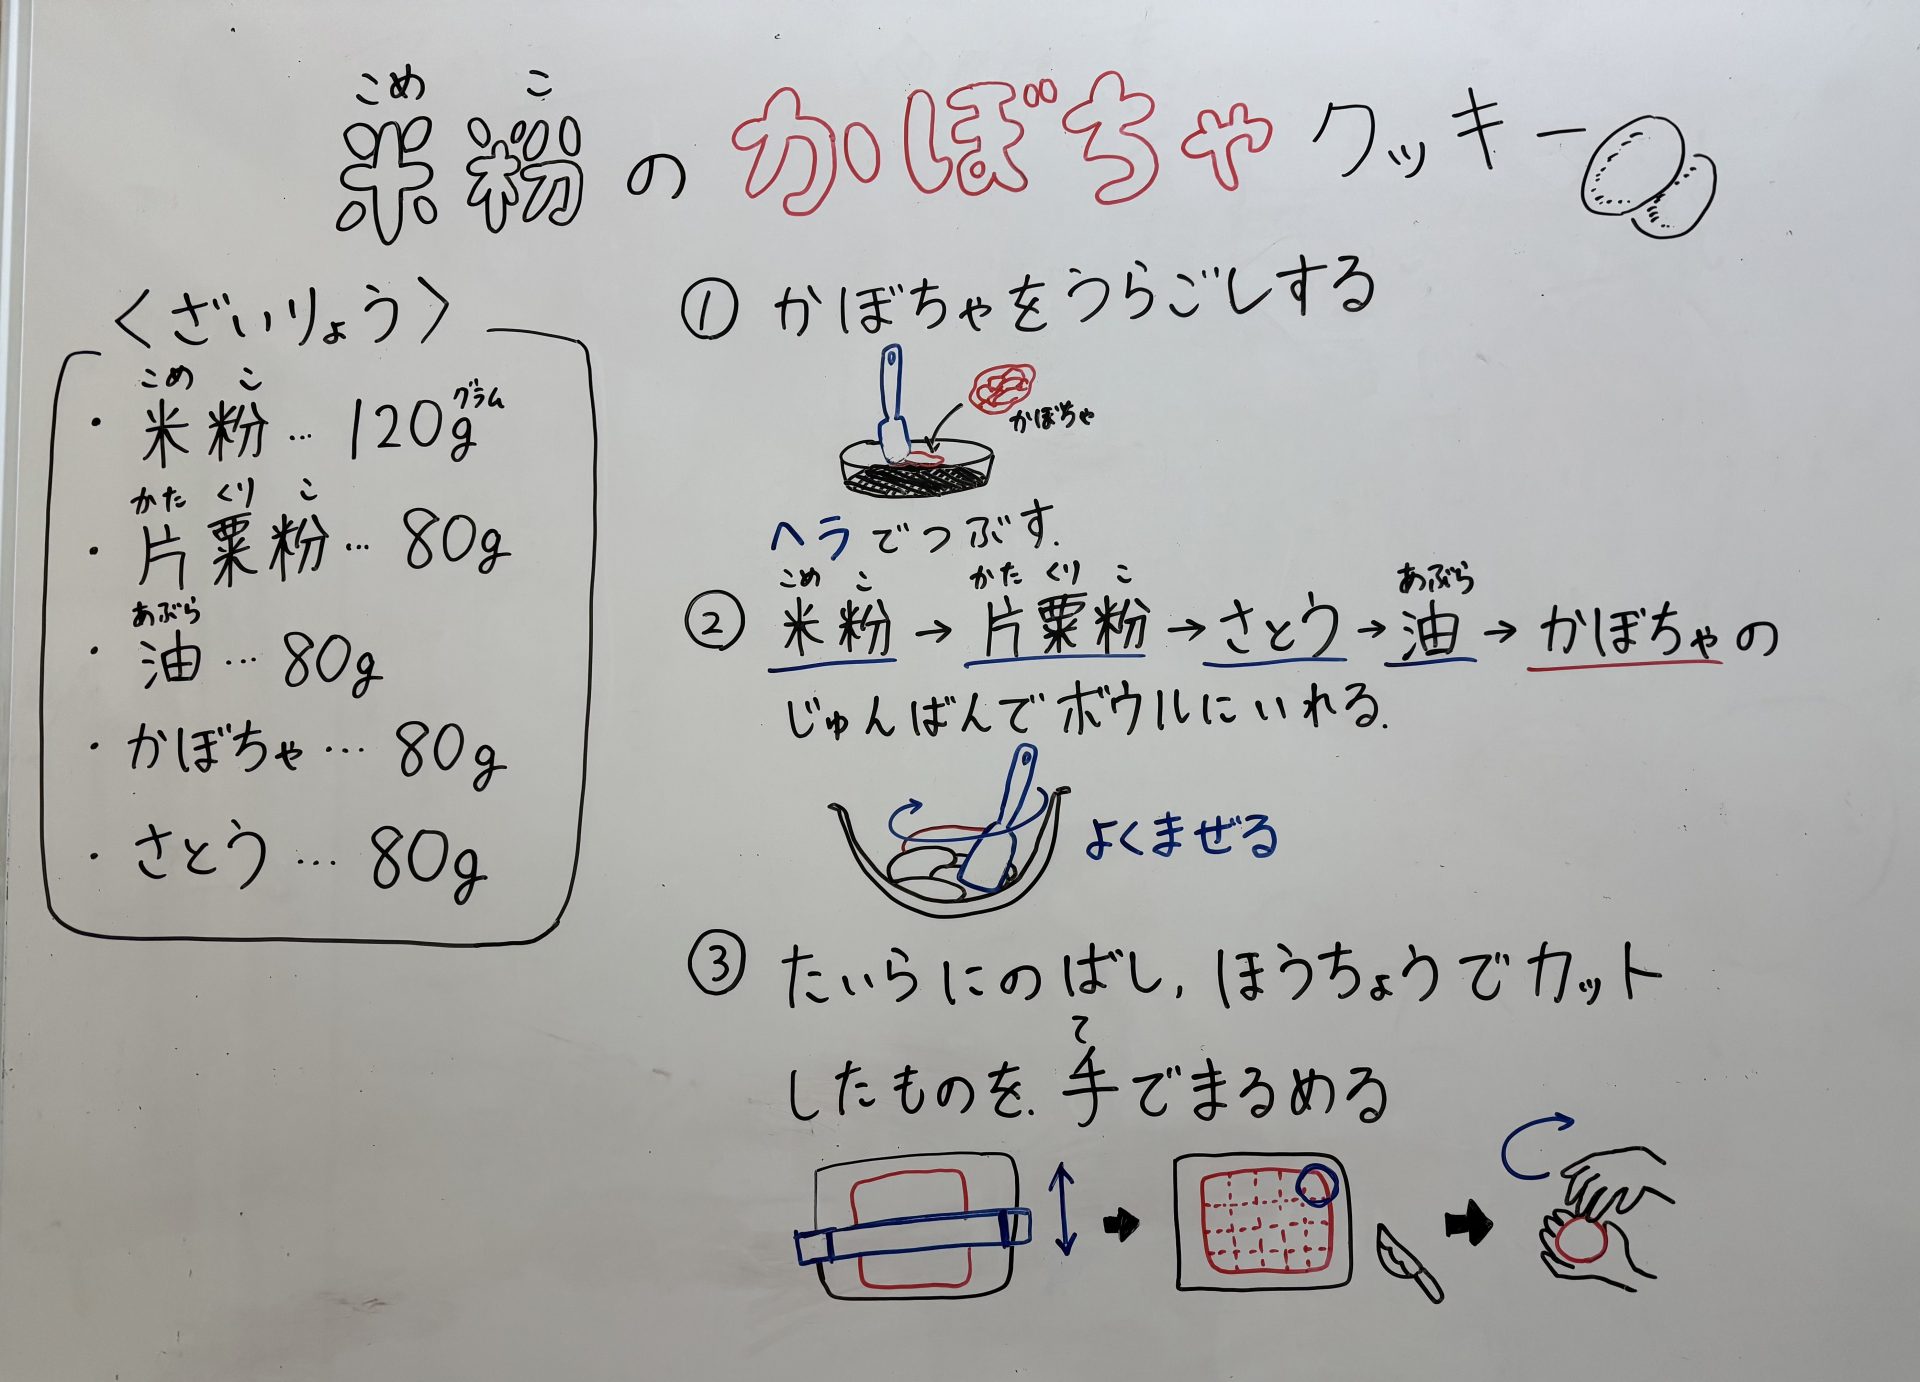 こめ こ
米粉のかぼちゃクッキー
〈ざいりょう〉
こめ こ
・米粉…120g
グラム
かた くり こ
・片栗粉…80g
あぶら
・油…80g
・かぼちゃ…80g
・さとう…80g
① かぼちゃをうらごしする
かぼちゃ
ヘラでつぶす.
こめ こ かた くり こ あぶら
② 米粉→片栗粉→さとう→油→かぼちゃの
じゅんばんでボウルにいれる.
よくまぜる
③ たいらにのばし,ほうちょうでカット
て
したものを.手でまるめる